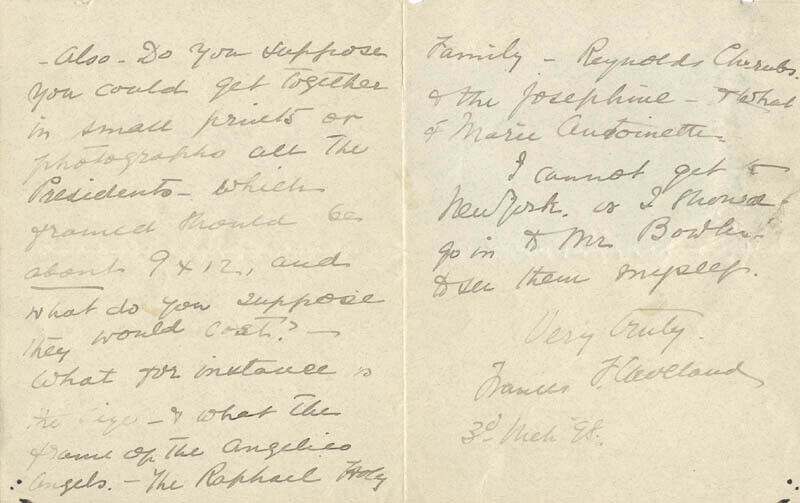 - Also - Do you suppose
you could get together
in small prints or
photographs all the
Presidents - which
framed should be
about 9 x 12, and
what do you suppose
they would cost? -
What for instance is
the size - & what the
frame of the Angelico
Angels. - The Raphael Holy
Family - Reynolds Cherubs.
& the Josephine - & what
of Marie Antoinette.
I cannot get to
New York. or I should
go in to Mr.
to see them myself.
Very truly.
Frances F. Cleveland
3d Mch '98.